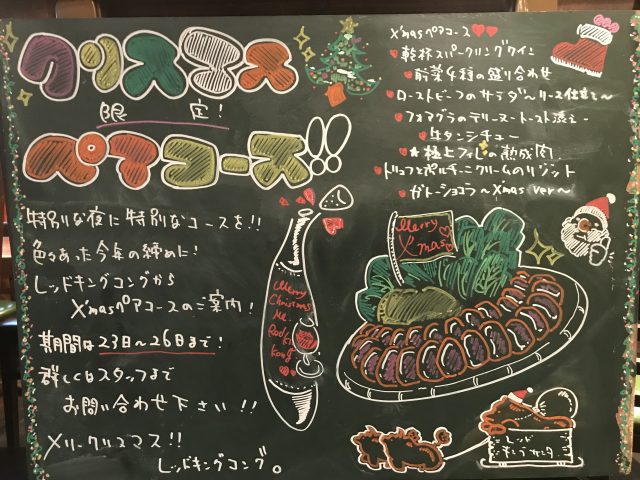 クリスマス
限定!
ペアコース!!
特別な夜に特別なコースを!!
色々あった今年の締めに!
レッドキングコングから
X'masペアコースのご案内!
期間は23日〜26日まで!
詳しくはスタッフまで
お問い合わせ下さい!!
メリークリスマス!!
レッドキングコング。
X'masペアコース♥♥
♥乾杯スパークリングワイン
♥前菜4種の盛り合わせ
♥ローストビーフのサラダ〜リース仕立〜
♥フォアグラのテリーヌ-トースト添え-
♥牛タンシチュー
♥★極上フィレの熟成肉
♥トリュフとポルチーニクリームのリゾット
♥ガトーショコラ〜Xmas ver〜
Merry
Christmas
Merry
X'mas
レッド
キングサンタ